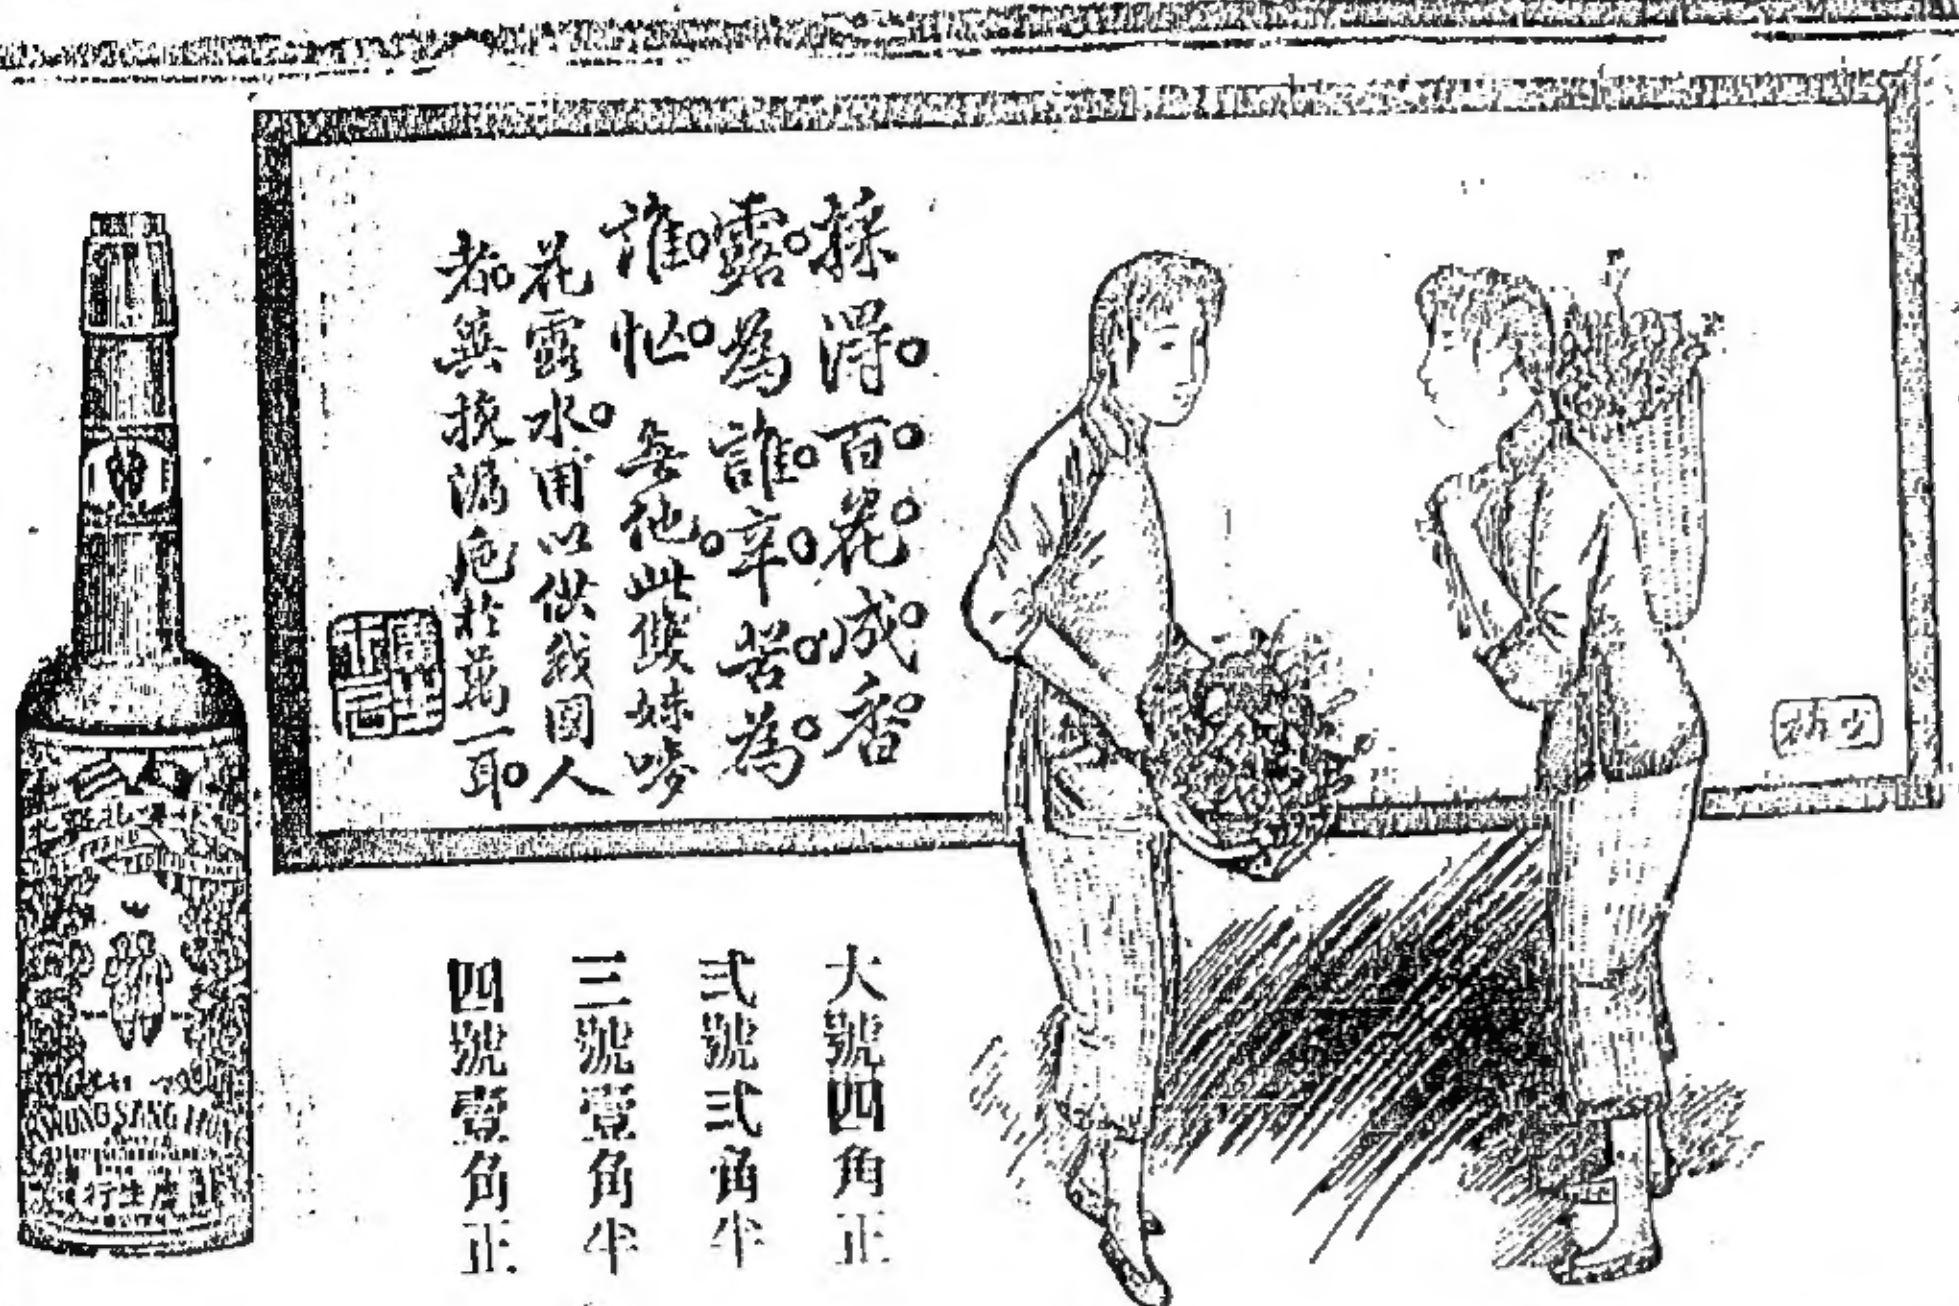 採得百花成香
露為誰辛苦為
誰忙 無他此雙妹嘜
花露水用以供我國人
者無挽漏卮於萬一耳
廣生
大號四角正
弍號弍角半
三號壹角半
四號壹角正
KWONG SANG HONG
行生廣